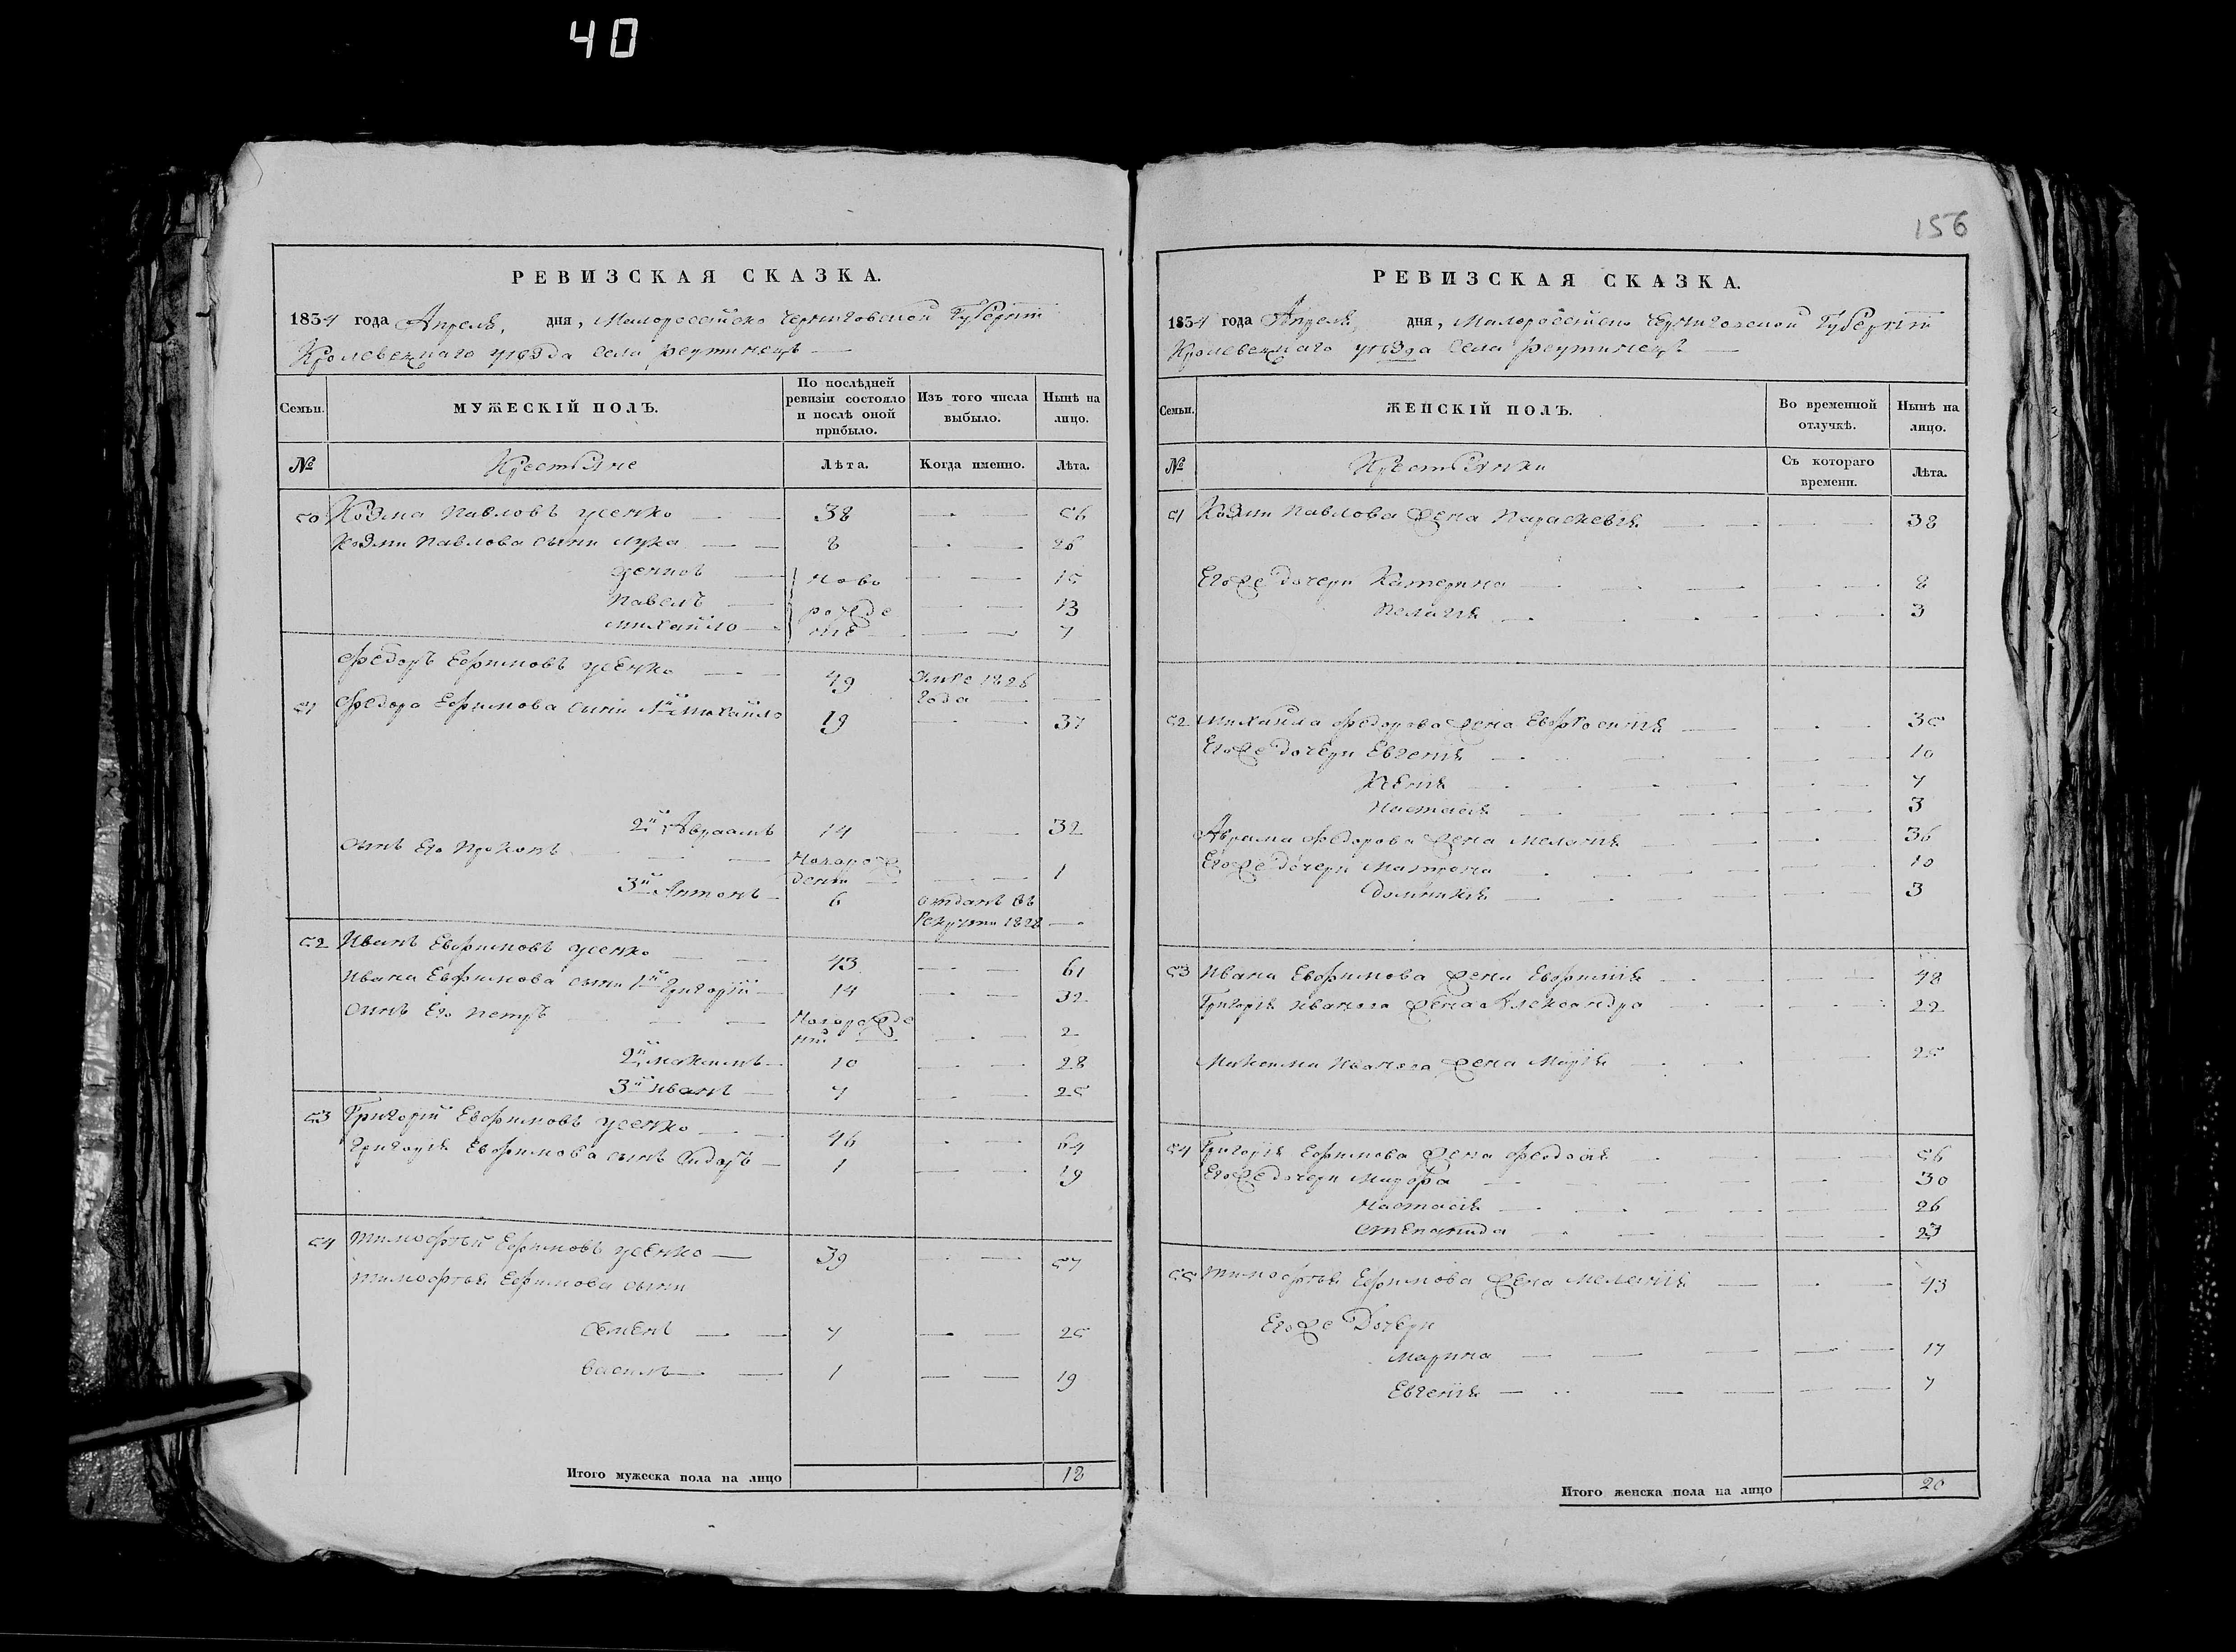 40
156
РЕВИЗСКАЯ СКАЗКА.
1834 года Апреля, дня, Малороссійско Черниговской Губерніи
Кролевецкаго уезда села реутинецъ
Семьи.
МУЖЕСКІЙ ПОЛЪ.
По послѣдней ревизіи состояло и послѣ оной прибыло.
Изъ того числа выбыло.
Нынѣ на лицо.
№ Крестьяне Лѣта. Когда именно. Лѣта.
50 Козма Павловъ усенко 38 56
Козми Павлова сыни Лука 8 26
ново 15
Павелъ рожде 13
Михайло ніе 7
Федоръ Ефимовъ усенко 49 умре 1826
года
51 Федора Ефимова сыни 1й Михайло 19 37
2й Авраамъ 14 32
сынъ Его Прокопъ Новорож
дені 1
3й Антонъ 6 отданъ въ
Рекруты 1828
52 Иванъ Евфимовъ усенко 43 61
Ивана Евфимова сыни 1й Григорій 14 32
сынъ Его Петръ Новорожде
ній 2
2й Максимъ 10 28
3й Иванъ 7 25
53 Григорій Евфимовъ усенко 46 64
Григорія Евфимова сынъ Сидоръ 1 19
54 Тимофѣй Ефимовъ усенко 39 57
Тимофѣя Ефимова сыни
Семенъ 7 25
Василь 1 19
Итого мужеска пола на лицо 18
РЕВИЗСКАЯ СКАЗКА.
1834 года Апреля, дня, Малороссійско Черниговской Губерніи
Кролевецкаго уѣзда села реутинецъ
Семьи.
ЖЕНСКІЙ ПОЛЪ.
Во временной отлучкѣ.
Нынѣ на лицо.
№ Крестьянки Съ котораго времени. Лѣта.
51 Козми Павлова жена Параскевія 38
Егоже дочери Катерина 8
Пелагія 3
52 Михайла Федорова жена Евфросинія 35
Егоже дочери Евгенія 10
Ксенія 7
Настасія 3
Аврама Федорова жена Меланія 36
Егоже дочери Матрона 10
Домникія 3
53 Ивана Евфимова жена Евфимія 48
Григорія Иванова жена Александра 22
Максима Иванова жена Марія 25
54 Григорія Ефимова жена Феодосія 56
Егоже дочери Мавра 30
Настасія 26
Степанида 23
55 Тимофѣя Ефимова жена Меланія 43
Егоже Дочери
Марина 17
Евгенія 7
Итого женска пола на лицо 20